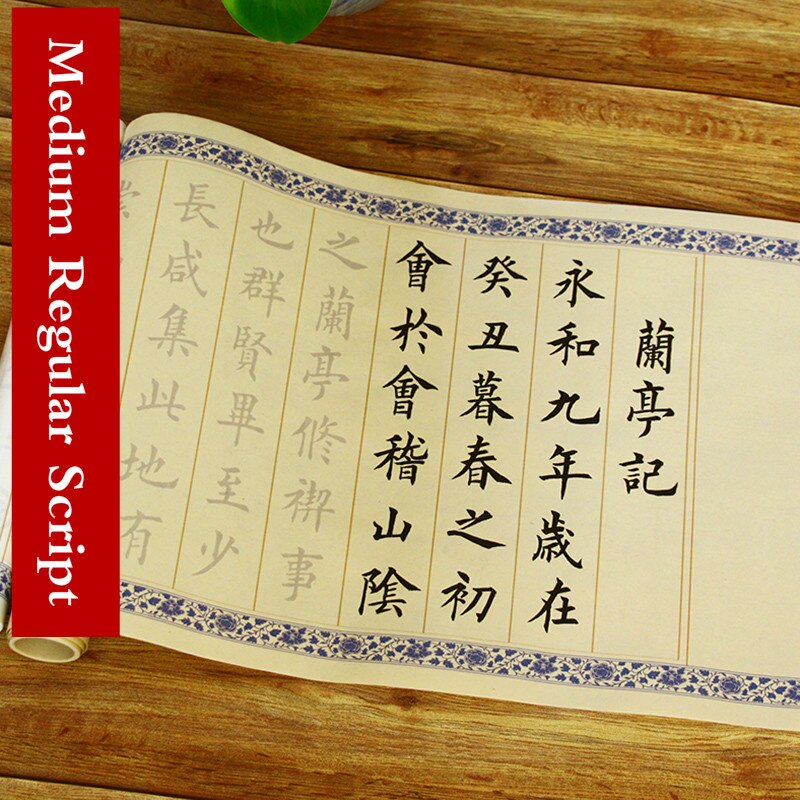 Medium Regular Script
蘭亭記
永和九年歲在
癸丑暮春之初
會於會稽山陰
之蘭亭修禊事
也群賢畢至少
長咸集此地有